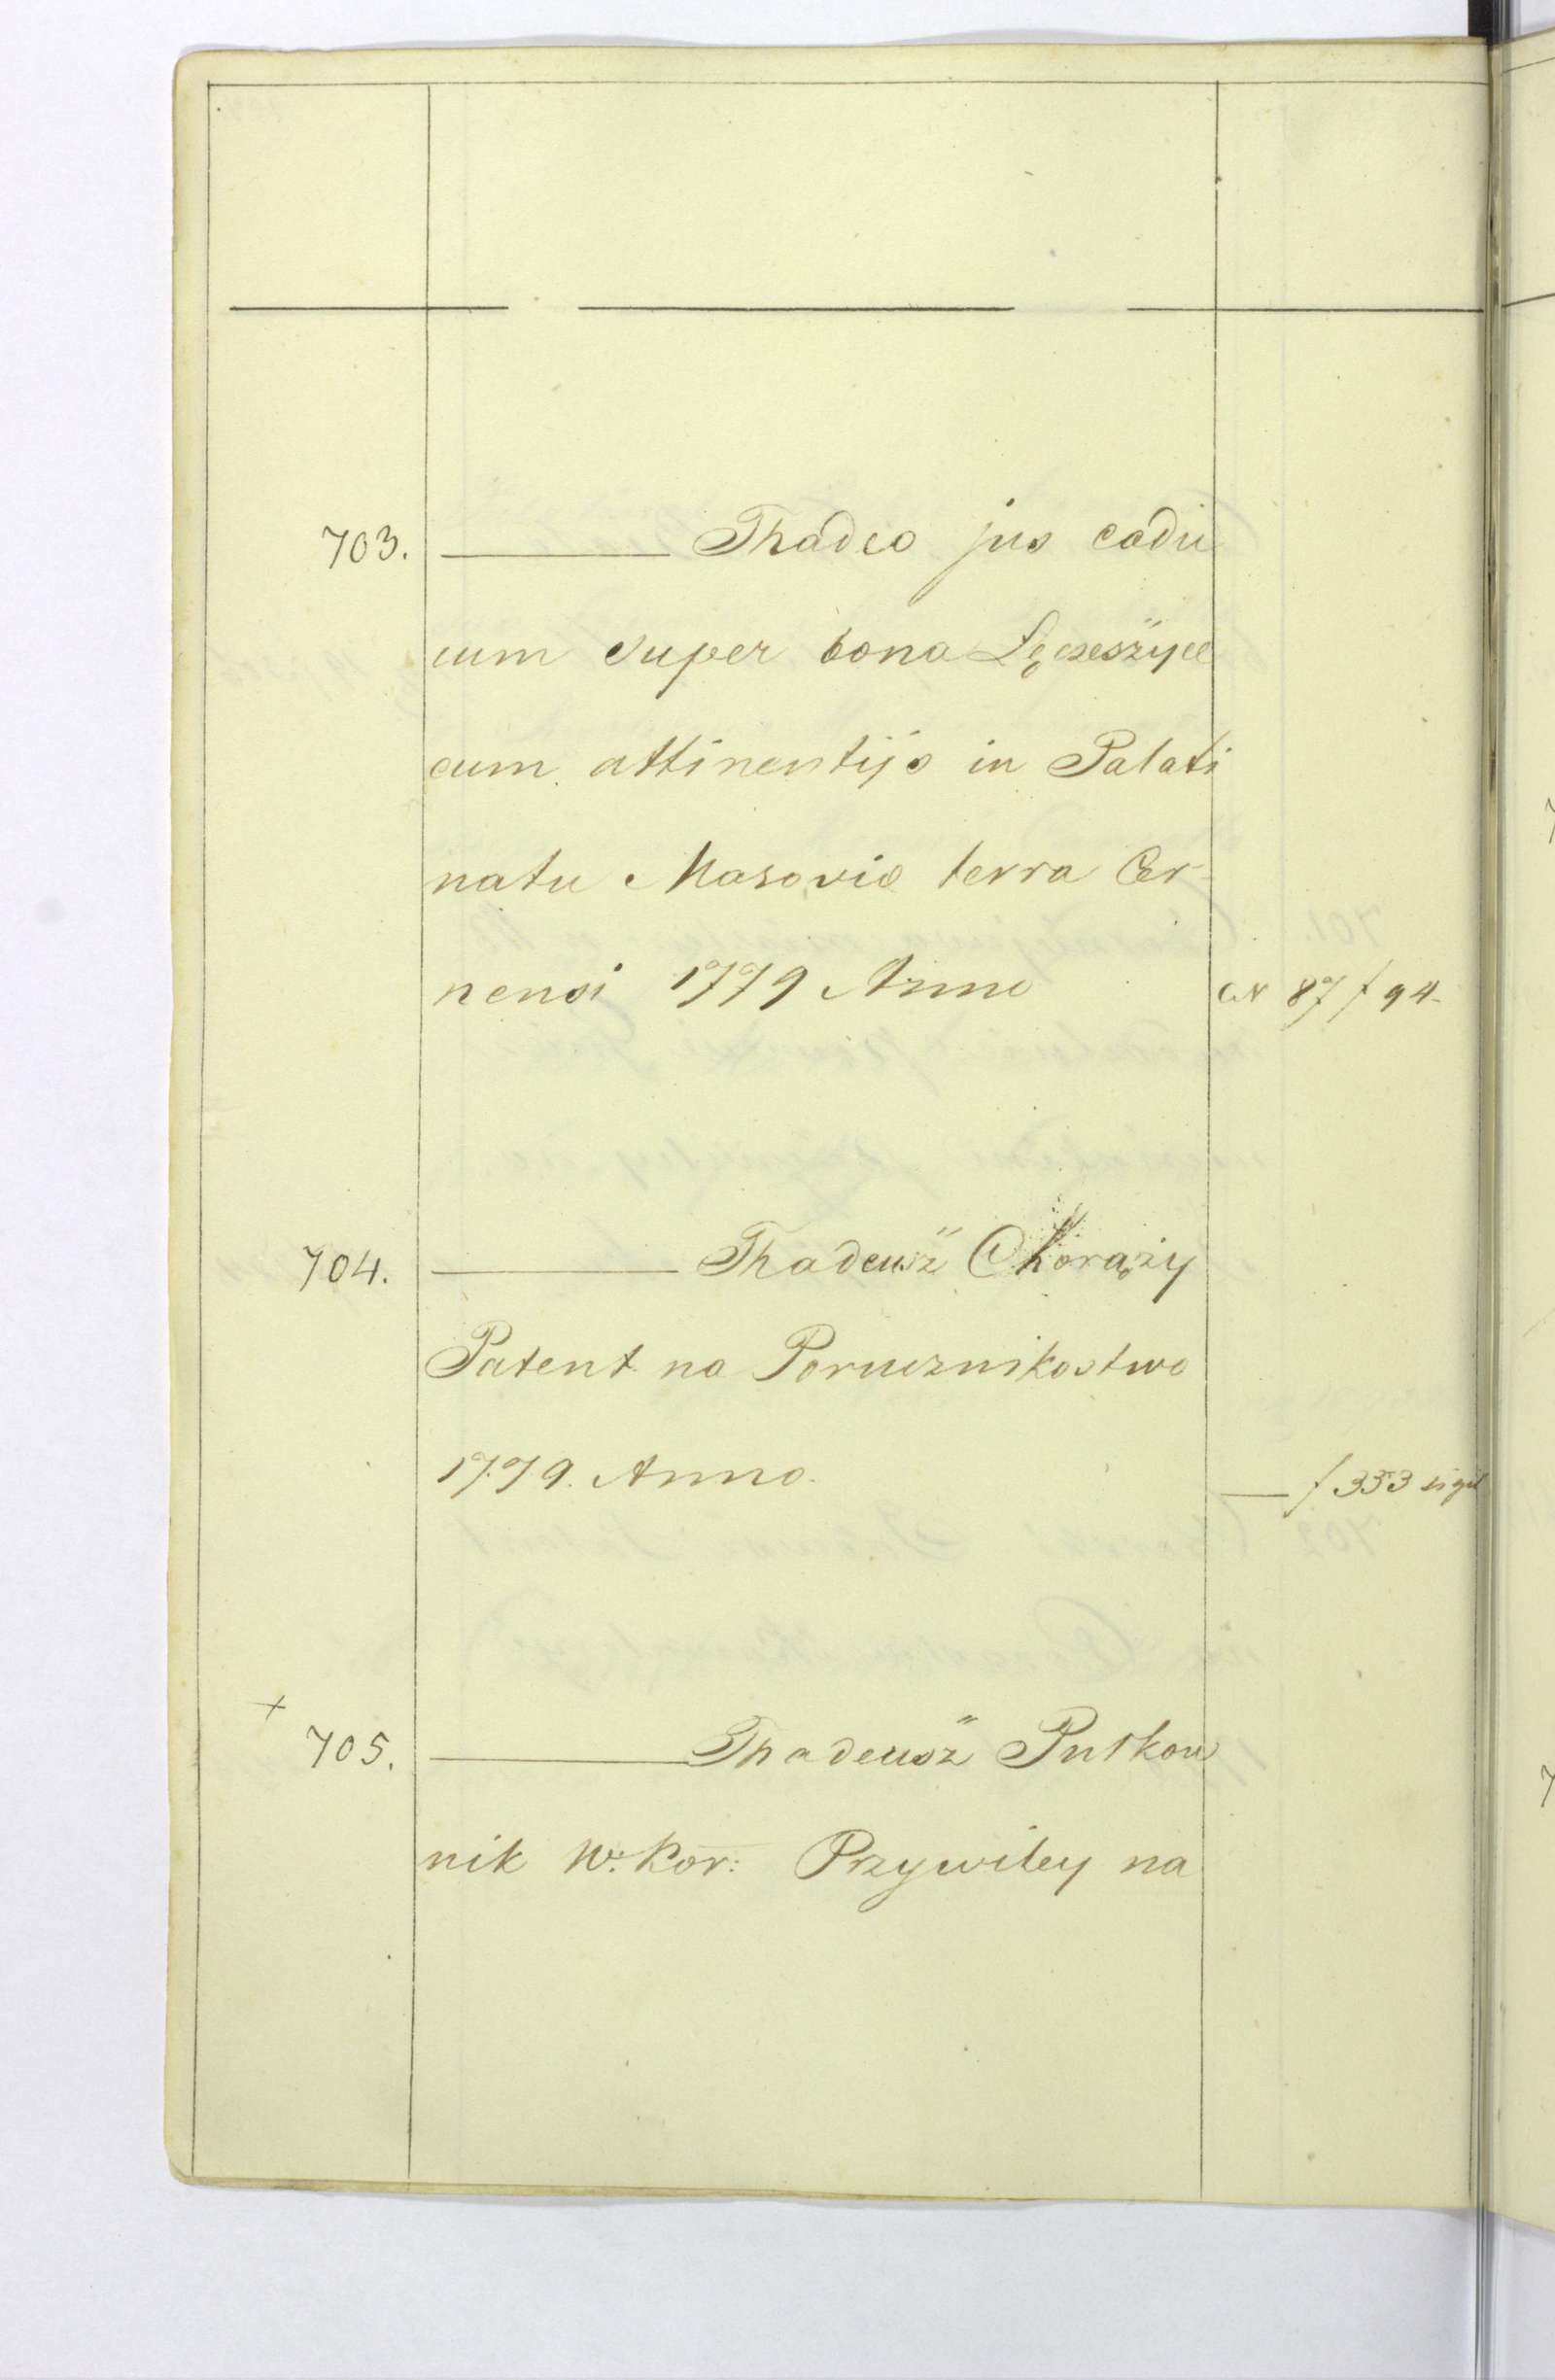 703. Thadeo jus cadu
cum super bona Lęczeszyce
cum attinentijs in Palati
natu Masovie terra Cer-
nensi 1779 Anno f 94
704. Thadeusz Chorąży
Patent na Porucznikostwo
1779. Anno. f 353 sigil
+
705. Thadeusz Putkow
nik W: Kor: Przywiley na